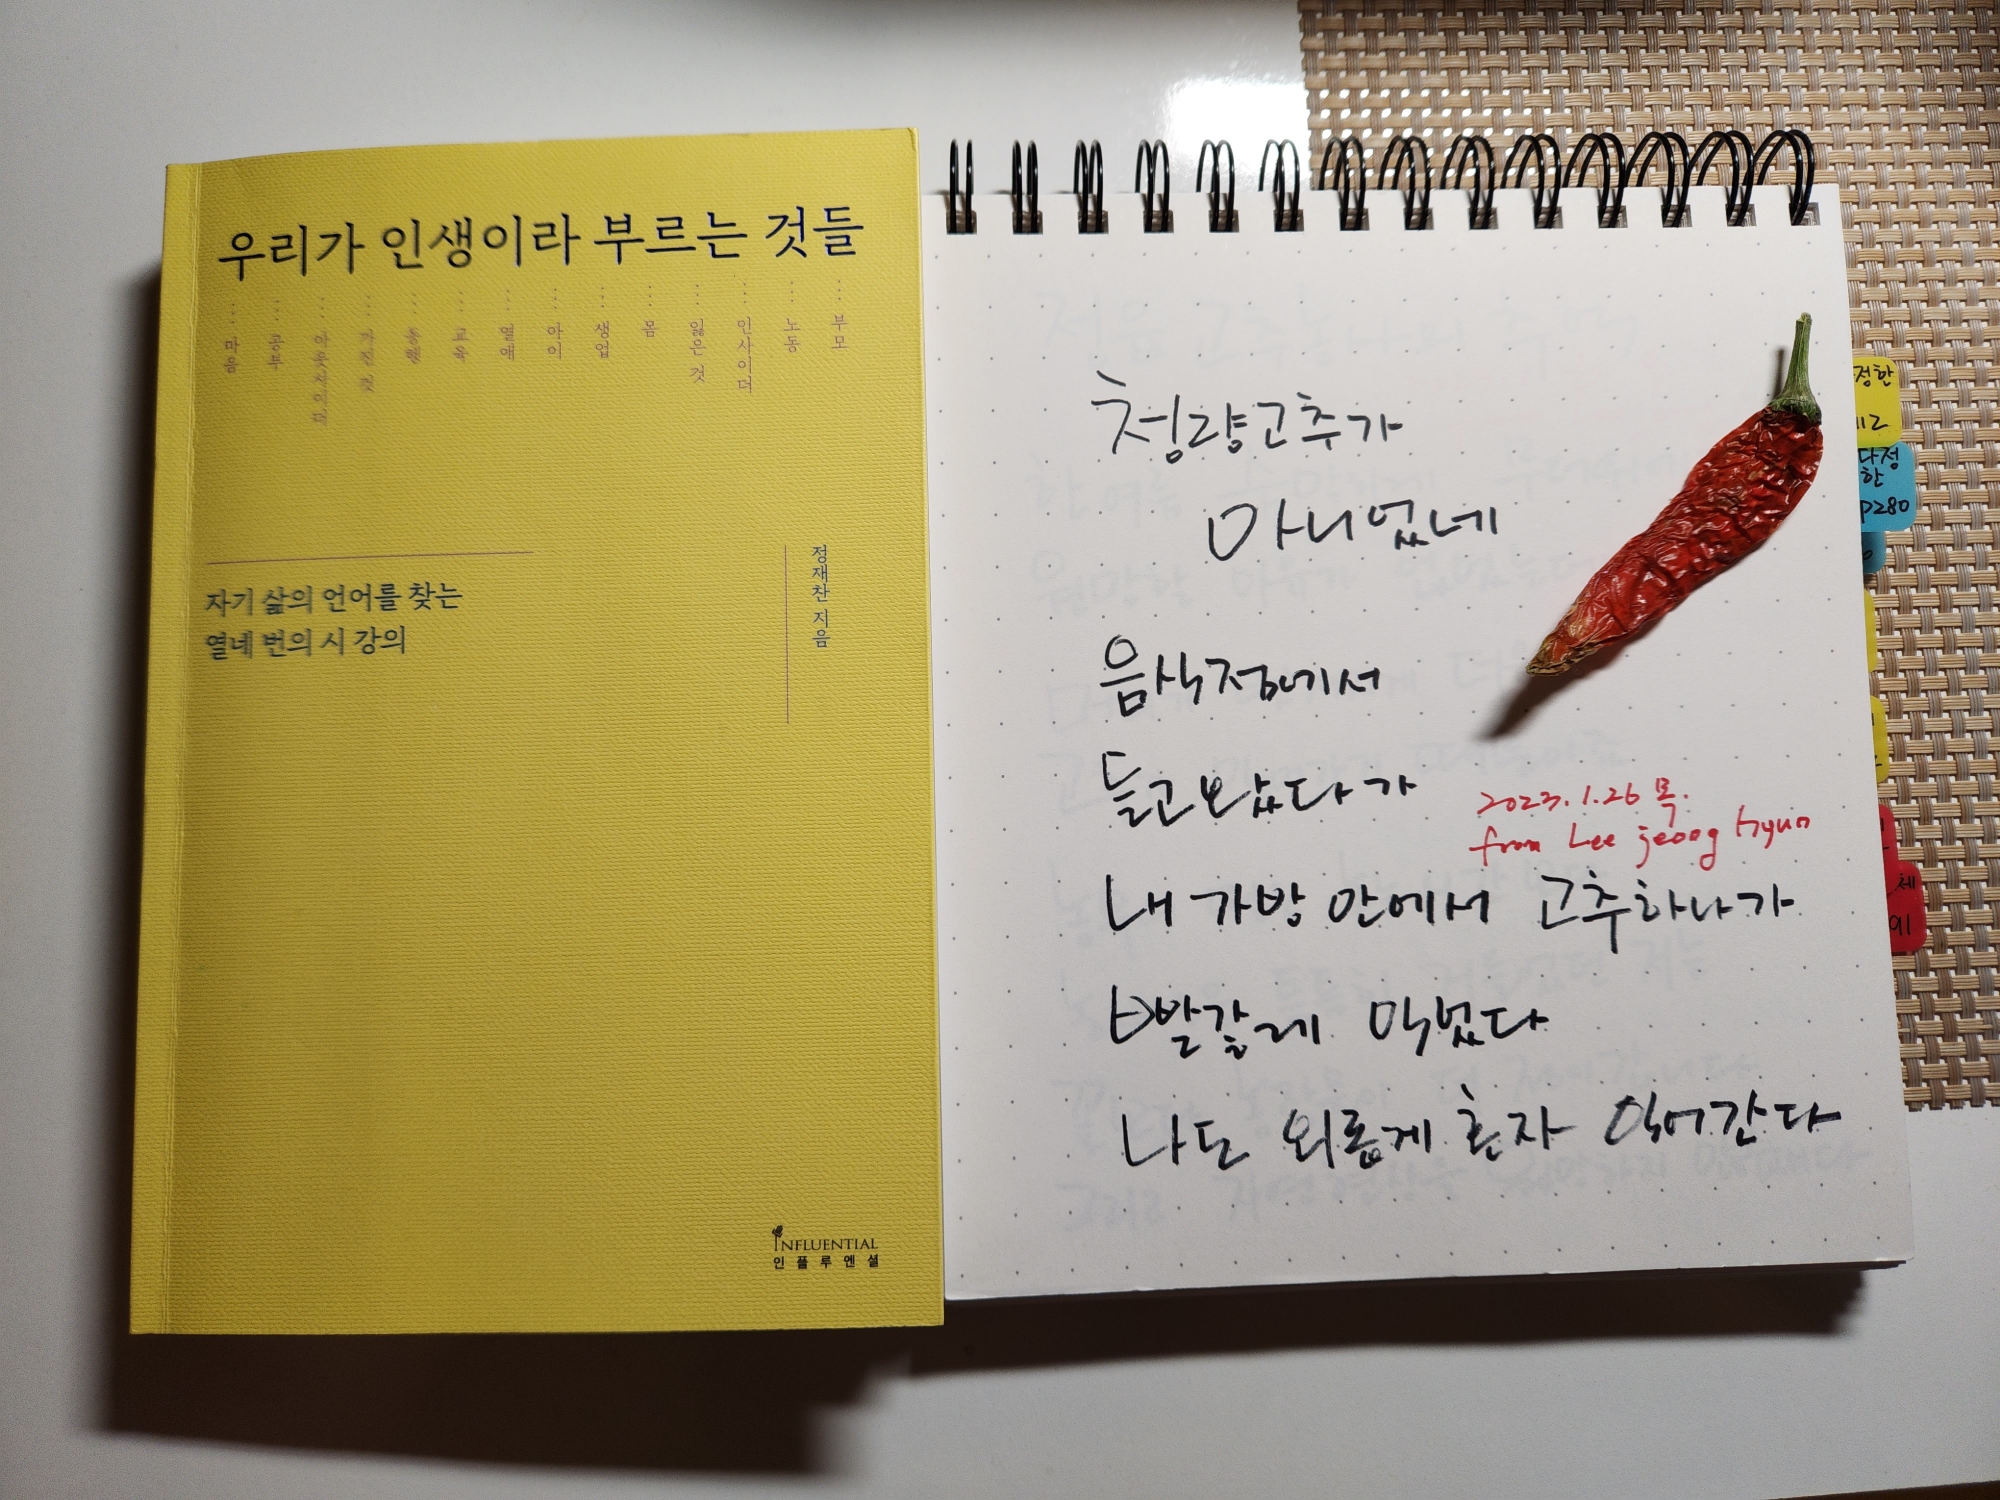 우리가 인생이라 부르는 것들
마음
공부
아웃사이더
가진 것
동행
교육
열애
아이
생업
몸
잃은 것
인사이더
노동
부모
자기 삶의 언어를 찾는
열네 번의 시 강의
정재찬 지음
INFLUENTIAL
인플루엔셜
청량고추가
아니었네
음식점에서
들고 왔다가
2023.1.26 목.
from Lee jeong Hyun
내 가방 안에서 고추하나가
빨갛게 익었다
나도 외롭게 혼자 익어간다
정한
다정
한
p280